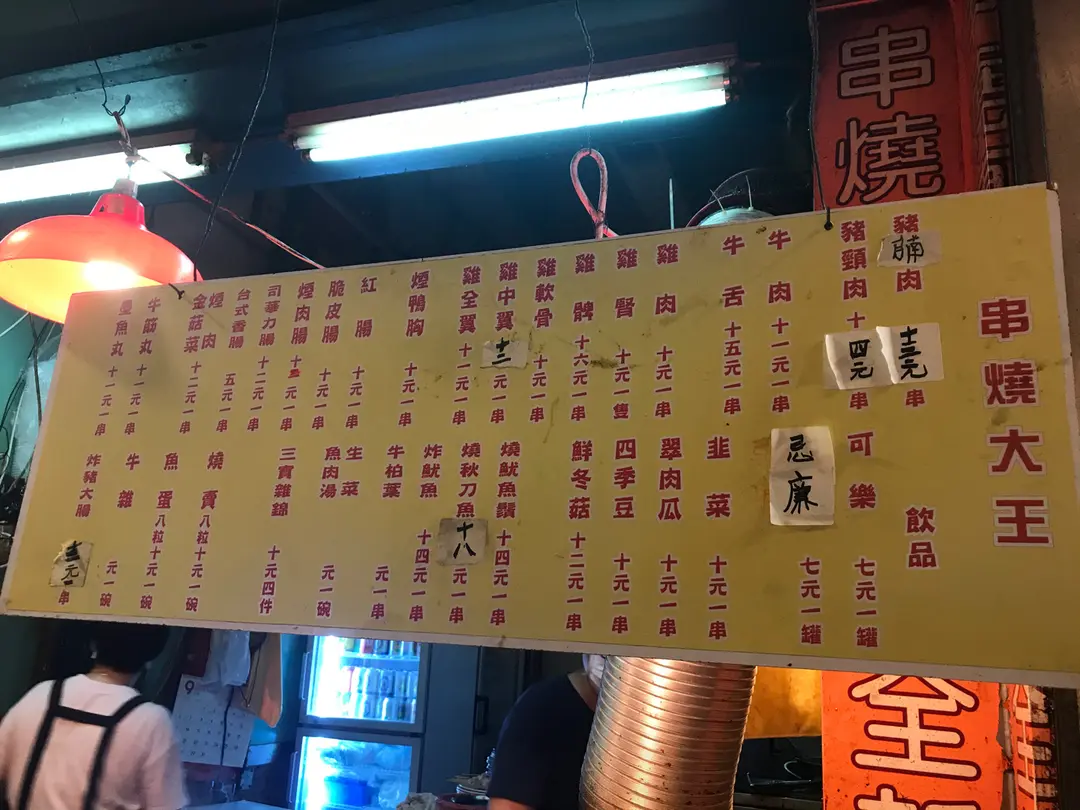 串燒
串燒大王
豬腩肉 十三元一串
豬頸肉 十四元一串
牛肉 十一元一串
牛舌 十五元一串
雞肉 十元一串
雞腎 十元一隻
雞髀 十六元一串
雞軟骨 十元一串
雞中翼 十二元一串
雞全翼 十一元一串
煙鴨胸 十元一串
紅腸 十元一串
脆皮腸 十元一串
煙肉腸 十元一串
司華力腸 十二元一串
台式香腸 五元一串
煙肉金菇菜 十二元一串
牛筋丸 十一元一串
墨魚丸 十一元一串
飲品
可樂 七元一罐
忌廉 七元一罐
韭菜 十元一串
翠肉瓜 十元一串
四季豆 十元一串
鮮冬菇 十二元一串
燒魷魚鬚 十四元一串
燒秋刀魚 十八元一串
炸魷魚 十四元一串
牛柏葉
生菜 元一串
魚肉湯 元一碗
三寶雜錦 十元四件
燒賣 八粒十元一碗
魚蛋 八粒十元一碗
牛雜 元一碗
炸豬大腸 元一串
9